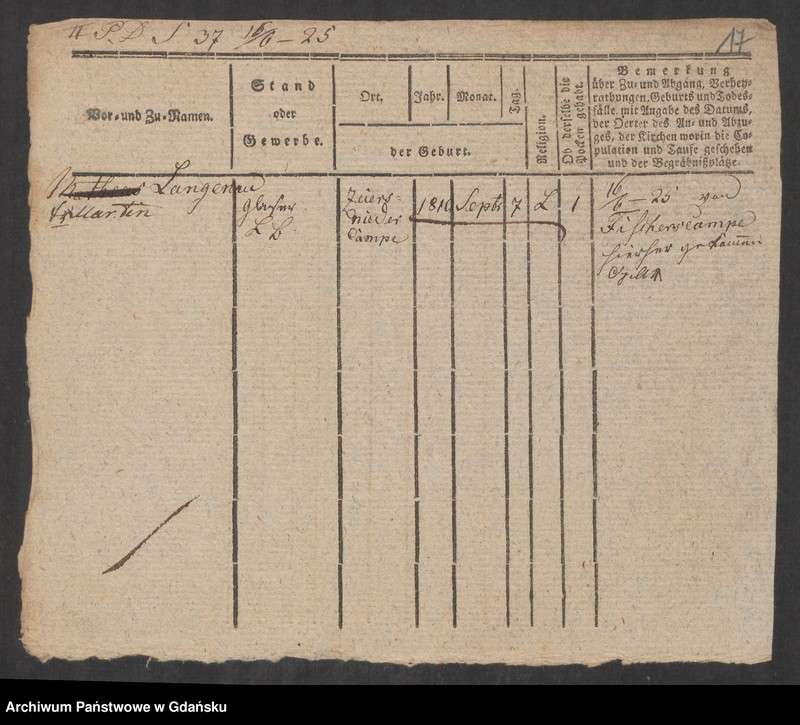 II P. D S 37 16/6 - 25
17
Vor- und Zu-Namen.
Stand
oder
Gewerbe.
Ort.
Jahr.
Monat.
Tag.
der Geburt.
Religion.
Ob derselbe die
Pocken gehabt.
Bemerkung
über Zu- und Abgang, Verhey-
rathungen, Geburts und Todes-
fälle, mit Angabe des Datums,
der Oerter des An- und Abzu-
ges, der Kirchen worin die Co-
pulation und Taufe geschehen
und der Begräbnißplätze.
Langenau
Martin
Glaser
L B
Zeiers-
nieder
Campe
1810
Septr
7
L
1
16/6 - 25 von
Fischerscampe
hierher gekommen
Archiwum Państwowe w Gdańsku